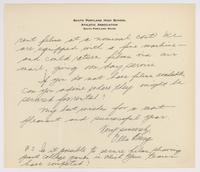 SOUTH PORTLAND HIGH SCHOOL
ATHLETIC ASSOCIATION
SOUTH PORTLAND, MAINE
rent films at a nominal cost? We
are equipped with a fine machine
and could return films via air
mail, giving one day service.
If you do not have films available,
can you advise where they might be
secured for rental?
My best wishes for a most
pleasant and successful year.
Very sincerely,
P.S. Is it possible to secure films showing
past college games in which your teams
have competed?